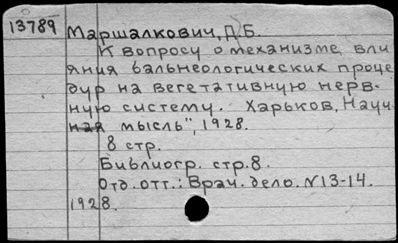 13789 Маршалкович, Д.Б.
К вопросу о механизме вли
яния бальнеологических проце
дур на вегетативную нерв-
ную систему. Харьков, Науч
ная мысль", 1928.
8 стр.
Библиогр. стр. 8.
Отд. отт.: Врач. дело. N13-14.
1928.